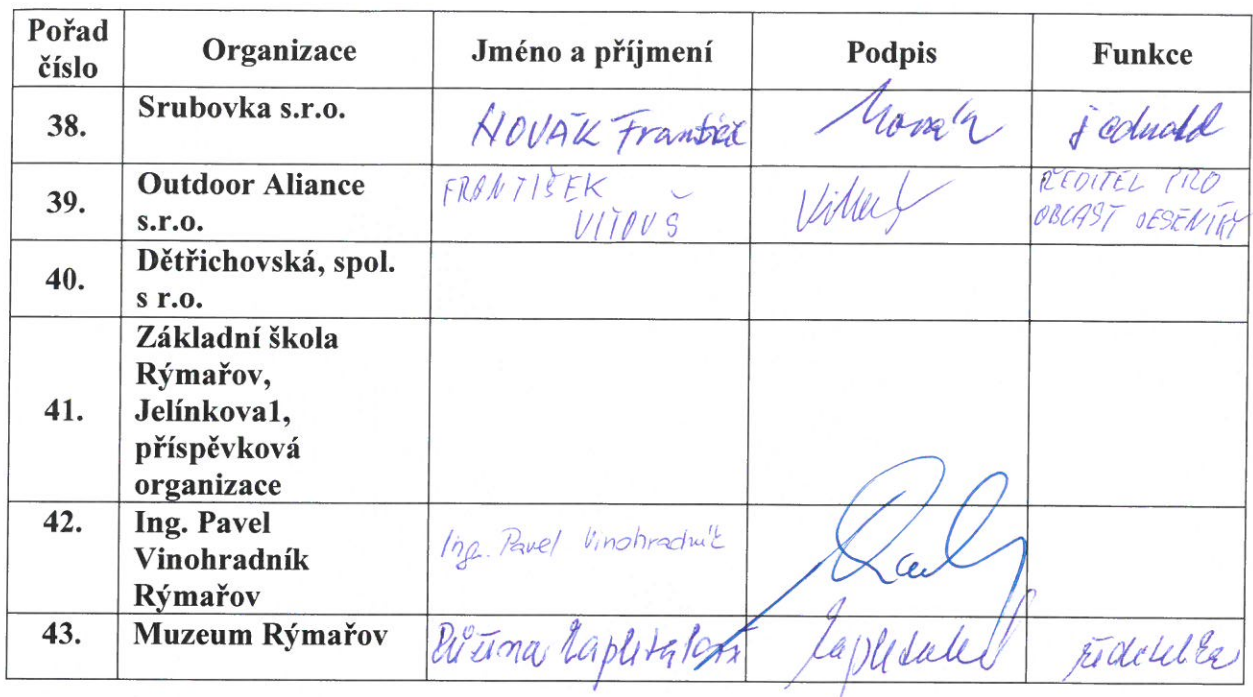 Pořad číslo Organizace Jméno a příjmení Podpis Funkce
38. Srubovka s.r.o. NOVÁK František Novák jednatel
39. Outdoor Aliance s.r.o. FRANTIŠEK VITOUŠ ŘEDITEL PRO OBLAST JESENÍKY
40. Dětřichovská, spol. s r.o.
41. Základní škola Rýmařov, Jelínkova1, příspěvková organizace
42. Ing. Pavel Vinohradník Rýmařov Ing. Pavel Vinohradník
43. Muzeum Rýmařov Růžena Zapletalová ředitelka